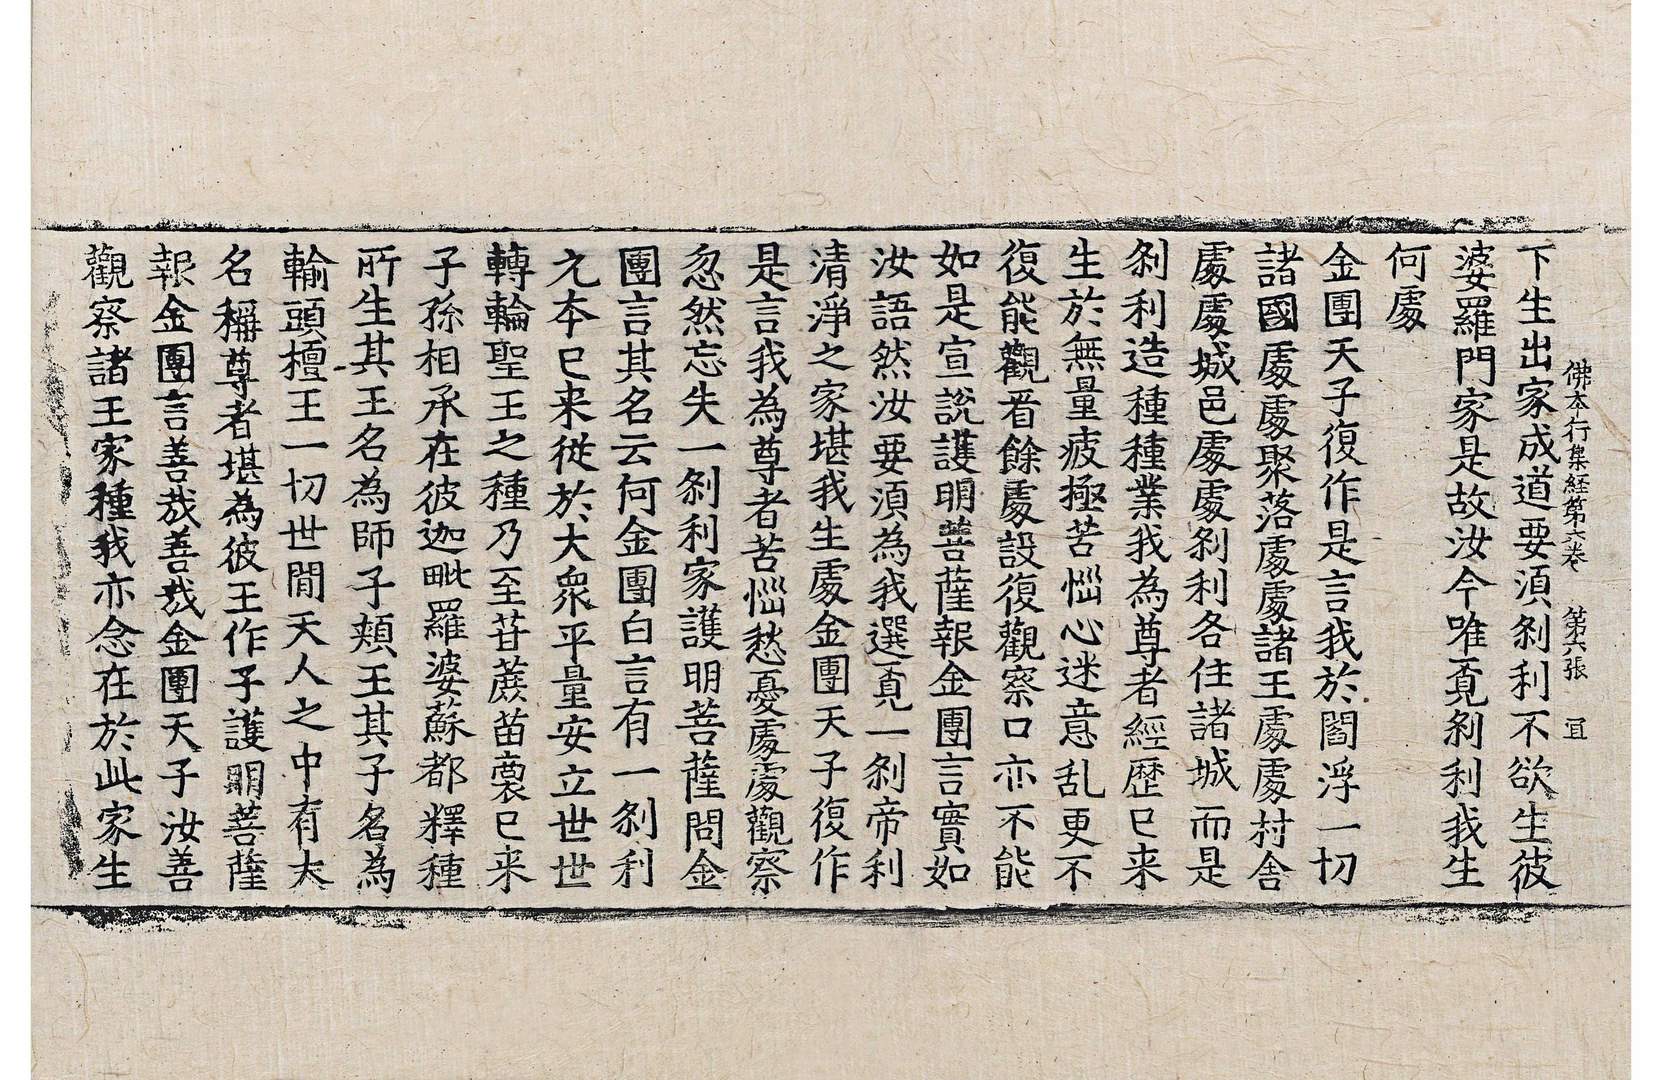 佛本行集経第六卷 第六張 宜
下生出家成道要湏刹利不欲生彼
婆羅門家是故汝今唯覔刹利我生
何處
金團天子復作是言我於閻浮一切
諸國處處聚落處處諸王處處村舍
處處城邑處處刹利各住諸城而是
刹利造種種業我為尊者經歷已来
生於無量疲極苦惱心迷意乱更不
復能觀看餘處設復觀察口亦不能
如是宣說護明菩薩報金團言實如
汝語然汝要須為我選覔一刹帝利
清淨之家堪我生處金團天子復作
是言我為尊者苦惱愁憂處處觀察
忽然忘失一刹利家護明菩薩問金
團言其名云何金團白言有一刹利
元本已来従於大衆平量安立世世
轉輪聖王之種乃至苷蔗苗裔已来
子孫相承在彼迦毗羅婆蘇都釋種
所生其王名為師子頰王其子名為
輸頭檀王一切世間天人之中有大
名稱尊者堪為彼王作子護明菩薩
報金團言善哉善哉金團天子汝善
觀察諸王家種我亦念在於此家生